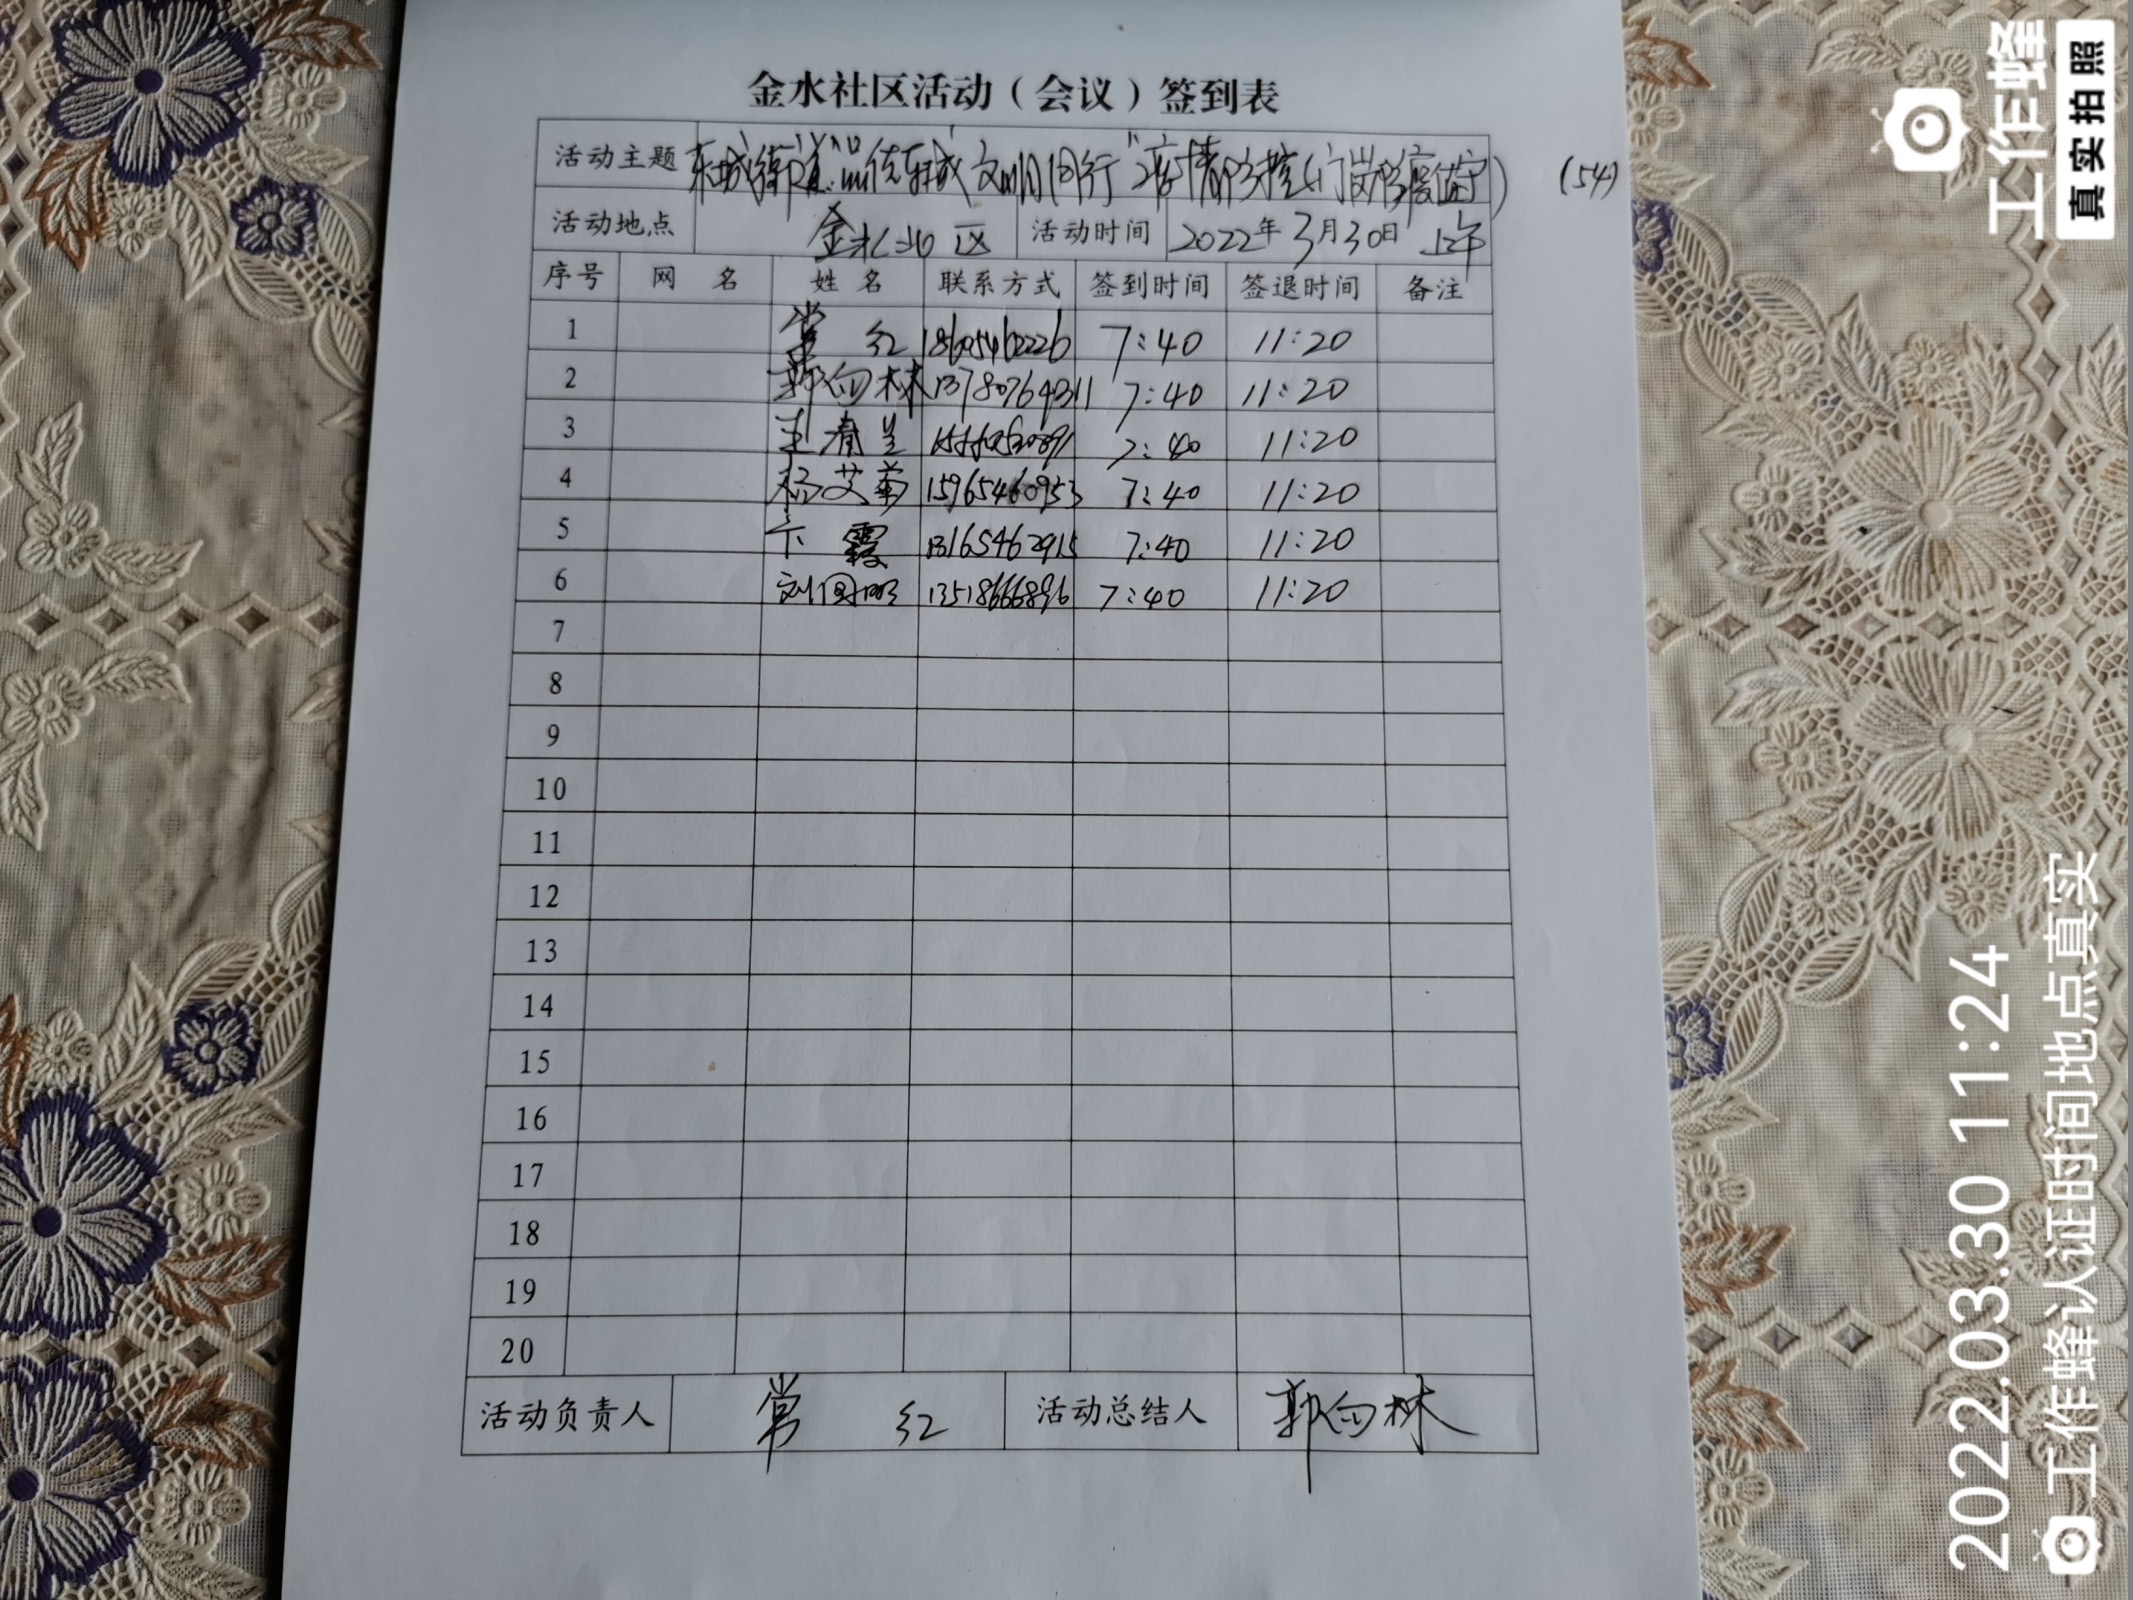 金水社区活动（会议）签到表
活动主题 东城街道"品德东城 文明同行"疫情防控(门岗防疫值守) (54)
活动地点 金水北区 活动时间 2022年3月30日 上午
序号 网 名 姓 名 联系方式 签到时间 签退时间 备注
1 常 红 18605462226 7:40 11:20
2 郭向林 13780764311 7:40 11:20
3 王青兰 7:40 11:20
4 杨艾菊 15965460953 7:40 11:20
5 卞 霞 13165462915 7:40 11:20
6 刘国明 13518666896 7:40 11:20
7
8
9
10
11
12
13
14
15
16
17
18
19
20
活动负责人 常 红 活动总结人 郭向林
工作蜂
真实拍照
2022.03.30 11:24
工作蜂认证时间地点真实